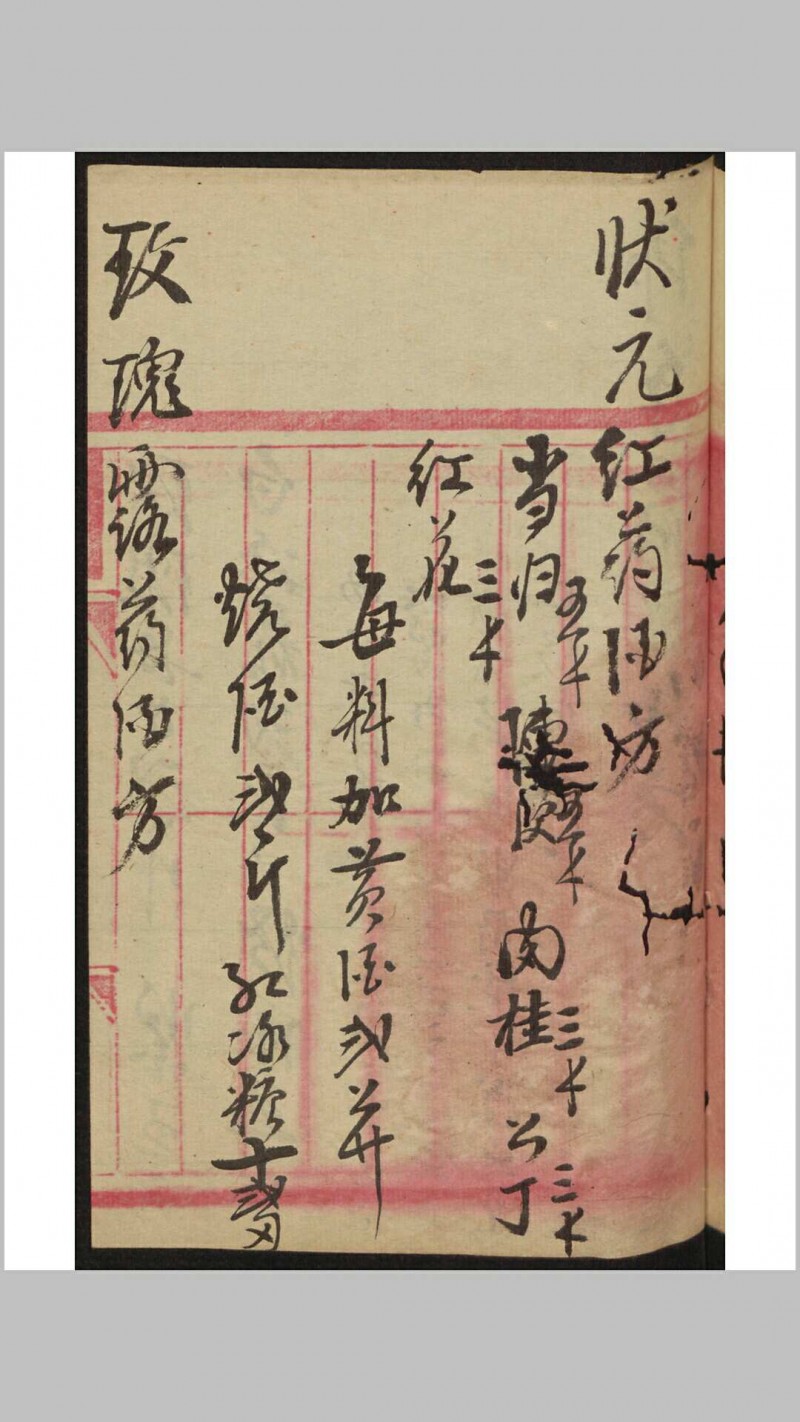 状元红药酒方
当归五钱 陳皮五钱 肉桂三钱 公丁三钱
红花三钱
每料加黄酒弍斤
烧酒弍斤 红冰糖十弍两
玫瑰露药酒方